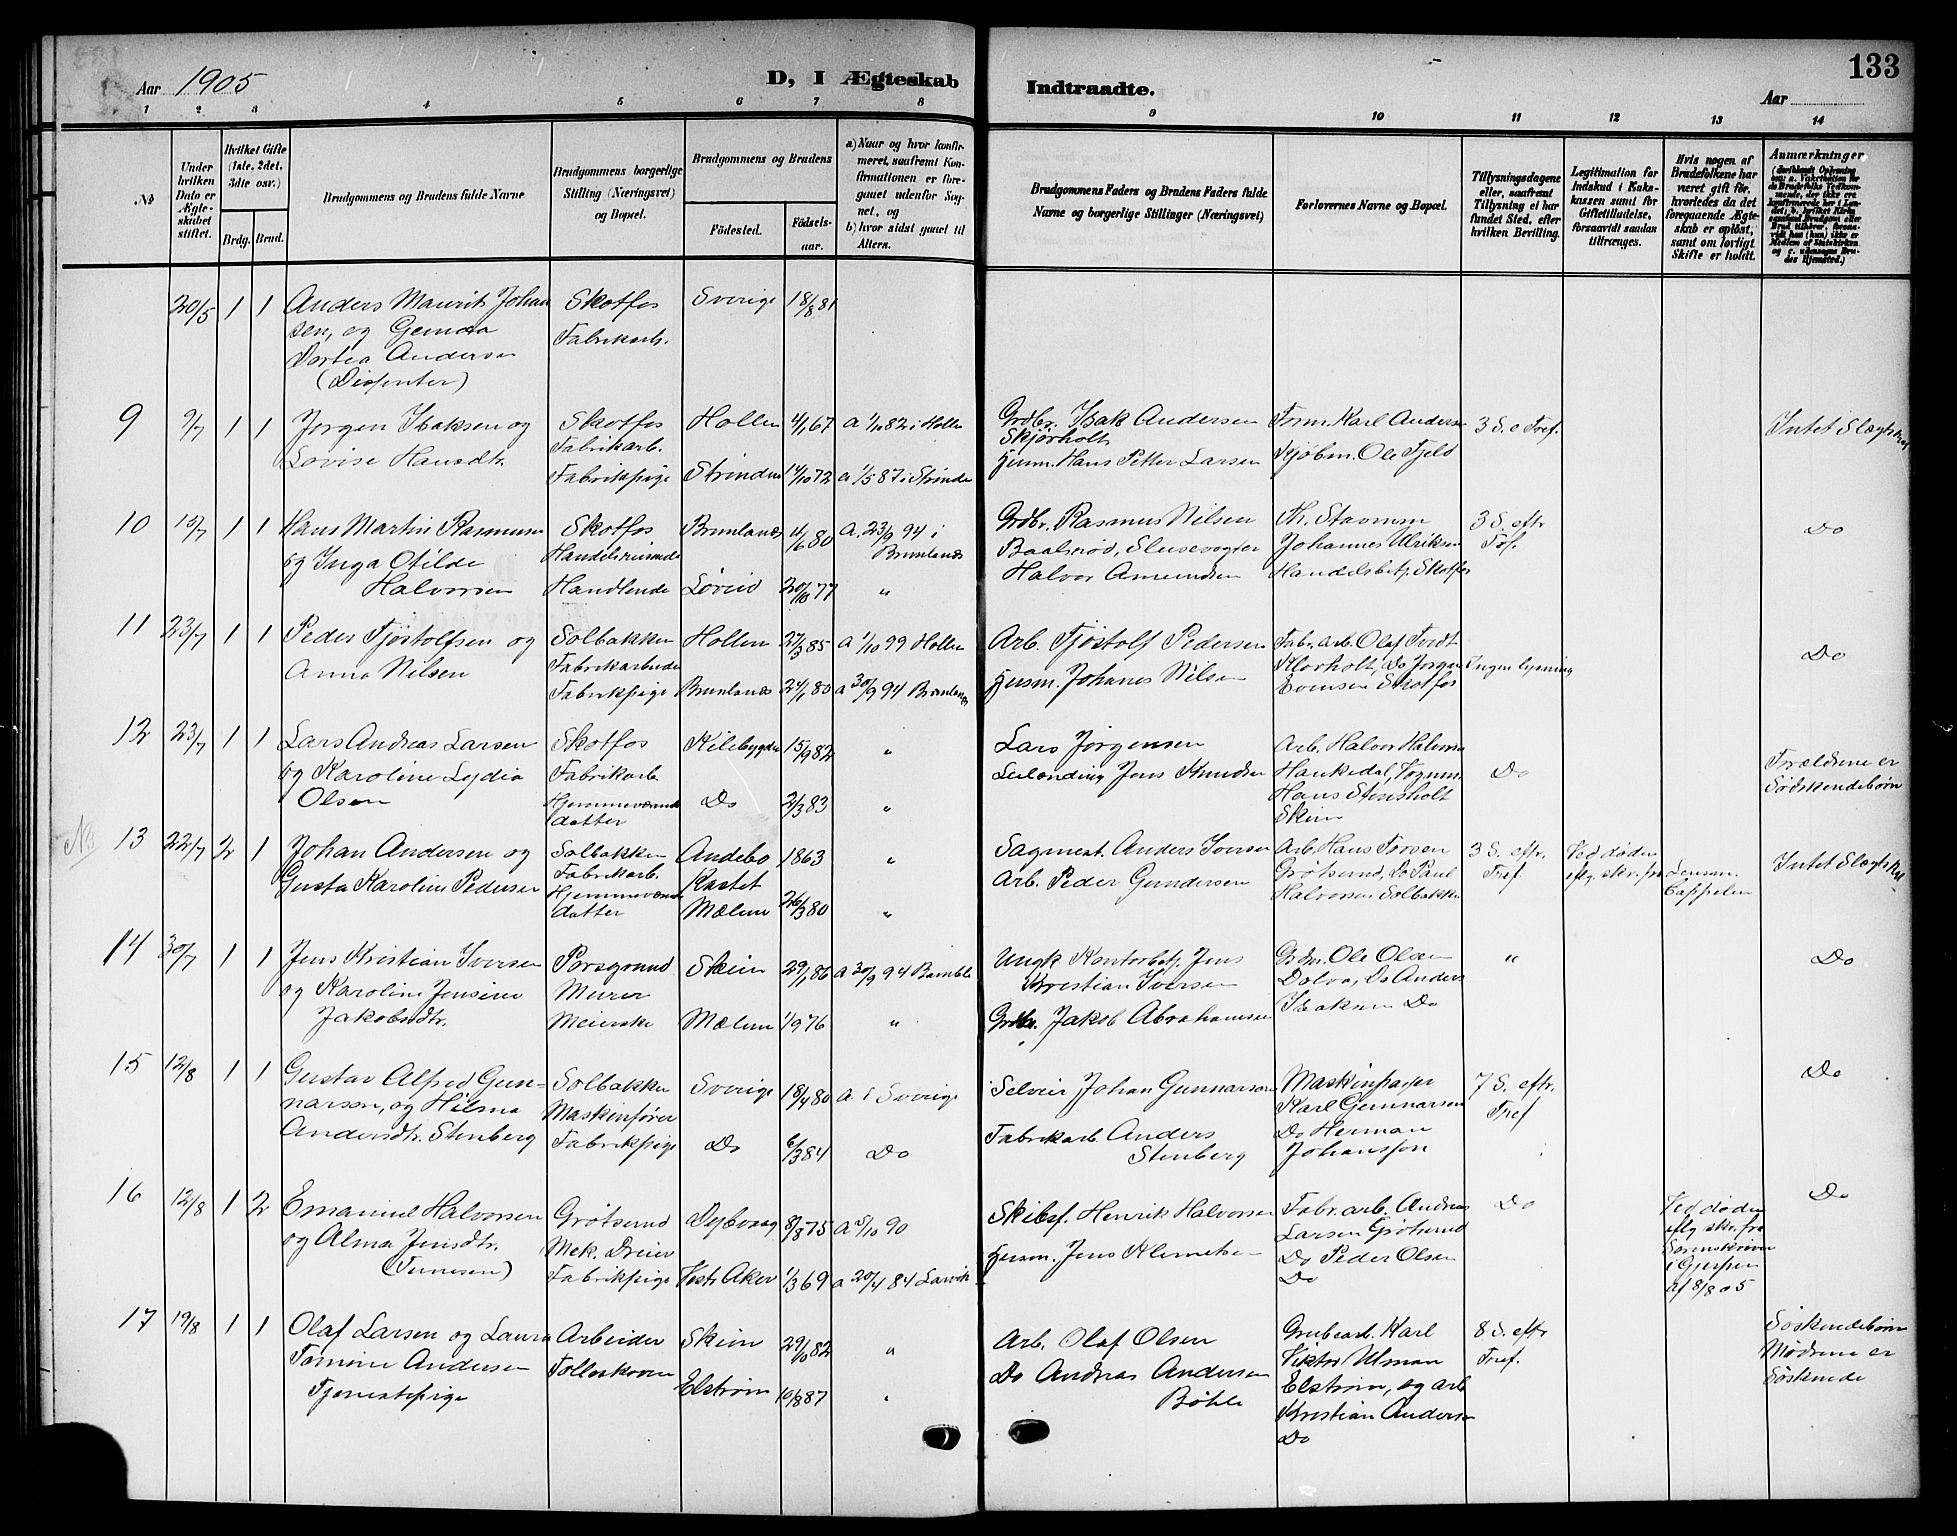 133
Aar 1905
D, I Ægteskab
Indtraadte.
Aar
1 2 3 4 5 6 7 8 9 10 11 12 13 14
No
Under hvilken Dato er Ægteskabet stiftet.
Hvilket Gifte (1ste, 2det, 3die osv.)
Brdg. Brud.
Brudgommens og Brudens fulde Navne
Brudgommens borgerlige Stilling (Næringsvei) og Bopæl.
Brudgommens og Brudens
Fødested.
Fødselsaar.
a) Naar og hvor konfirmeret, saafremt Konfirmationen er foregaaet udenfor Sognet, og
b) hvor sidst gaaet til Alters.
Brudgommens Faders og Brudens Faders fulde Navne og borgerlige Stillinger (Næringsvei)
Forlovernes Navne og Bopæl.
Tillysningsdagene eller, saafremt Tillysning ei har fundet Sted, efter hvilken Bevilling.
Legitimation for Indskud i Enkekassen samt for Giftetilladelse, forsaavidt saadan tiltrænges.
Hvis nogen af Brudefolkene har været gift før, hvorledes da det foregaaende Ægteskab er opløst, samt om lovligt Skifte er holdt.
Anmærkninger
20/5 1 1 Anders Maurits Johan
sen, og
Dortea Andersen
(Dissenter)
Skotfos
Fabrikarb.
Sverige 18/8 81
9 9/7 1 1 Jørgen Isaksen og
Lovise Hansdtr.
Skotfos
Fabrikarb.
Fabrikpige
Hollen 4/1 67 a 1/10 82 i Hollen
Strinden 14/10 72 a 1/5 87 i Strinde
Grdbr. Isak Andersen
Skjørholt
Husm. Hans Petter Larsen
Form. Karl Anders
Kjøbm. Ole Fjeld
3 S. e Tref.
Intet Slægtskab
10 15/7 1 1 Hans Martin Rasmusen
og Inga Otilde
Halvorsen
Skotfos
Handelsreisende
Handlende
Brunlanæs 11/6 80 a. 23/9 94 i
Brunlanæs
Løveid 20/10 77 "
Grdbr. Rasmus Nilsen
Baalsrød, Slusevogter
Halvor Amundsen
Th. Stavnum
Johannes Ulriksen
Handelsbetj. Skotfos
3 S. eftr
Tref.
Do
11 23/7 1 1 Peder Tjøstolfsen og
Anna Nilsen
Solbakken
Fabrikarbeider
Fabrikpige
Hollen 27/3 85 a 1/10 99 Hollen
Brunlanæs 24/1 80 a 30/9 94 Brunlanæs
Arb. Tjøstolf Pedersen
Husm. Johanes Nilsen
Fabr. arb. Olaf Tvedt
Klovholt, Do Jørgen
Evensen Skotfos
Ingen lysning
Do
12 23/7 1 1 Lars Andreas Larsen
og Karoline Lydia
Olsen
Skotfos
Fabrikarb.
Hjemmeværende
datter
Kilebygden 15/9 82 "
Do 2/3 83 "
Lars Jørgensen
Leilending Jens Knudsen
Arb. Halvor Halvorsen
Haukedal, Vognm.
Hans Stensholt
Skien
Do
Forældrene er
Sødskendebørn
NB 13 22/7 2 1 Johan Andersen og
Gusta Karoline Pedersen
Solbakken
Fabrikarb.
Hjemmeværende
datter
Andebo 1863 "
Mælum 26/3 80 "
Sagmest. Anders Iversen
Arb. Peder Gundersen
Arb. Hans Torsen
Grøtsund, Do Paul
Halvorsen Solbakken
3 S. eftr.
Tref
Ved døden
eflg. skr. fra Lensm.
Cappelen
Intet Slægtskab
14 30/7 1 1 Jens Kristian Iversen
og Karoline Jensine
Jakobsdtr.
Porsgrund
Murer
Meierske
Skien 29/1 86 a 30/9 94 Bamble
Mælum 1/9 76 "
Ungk Kontorbetj. Jens
Kristian Iversen
Grdbr. Jakob Abrahamsen
Grdm. Ole Olsen
Dolva, Do Anders
Isaksen Do
"
Do
15 12/8 1 1 Gustav Alfred Gun-
narsen, og Hilma
Andersdtr. Stenberg
Solbakken
Maskinfører
Fabrikpige
Sverige 18/4 80 a i Sverige
Do 6/3 84 Do
Selveir Johan Gunnarson
Fabrikarb Anders
Stenberg
Maskinpasser
Karl Gunnarsen
Do Herman
Johansson
7 S. eftr.
Tref
Do
16 12/8 1 2 Emanuel Halvorsen
og Alma Jensdtr.
(Tunesen)
Grøtsund
Mek. Dreier
Fabrikpige
Dybvaag 8/8 75 a 5/10 90
Vestr. Aker 1/3 69 a 20/4 84 Larvik
Skibsf. Henrik Halvorsen
Husm. Jens Klemetsen
Fabr. arb. Andreas
Larsen Grøtsund
Do Peder Olsen
Do
Do
Ved døden
eflg skr. fra
Sorenskriver
i Gjerpen
af 8/8 05
Do
17 19/8 1 1 Olaf Larsen og Laura
Tomine Andersen
Tjenestepige
Arbeider
Tolleskoven
Skien 29/10 82 "
Elstrøm 10/8 87 "
Arb. Olaf Olsen
Do Andreas Andersen
Bøhle
Grubearb. Karl
Viktor Ulman
Elstrøm, og arb
Kristian Andersen
Do
8 S. eftr
Tref.
Søskendebørn
Mødrene er
Søskende